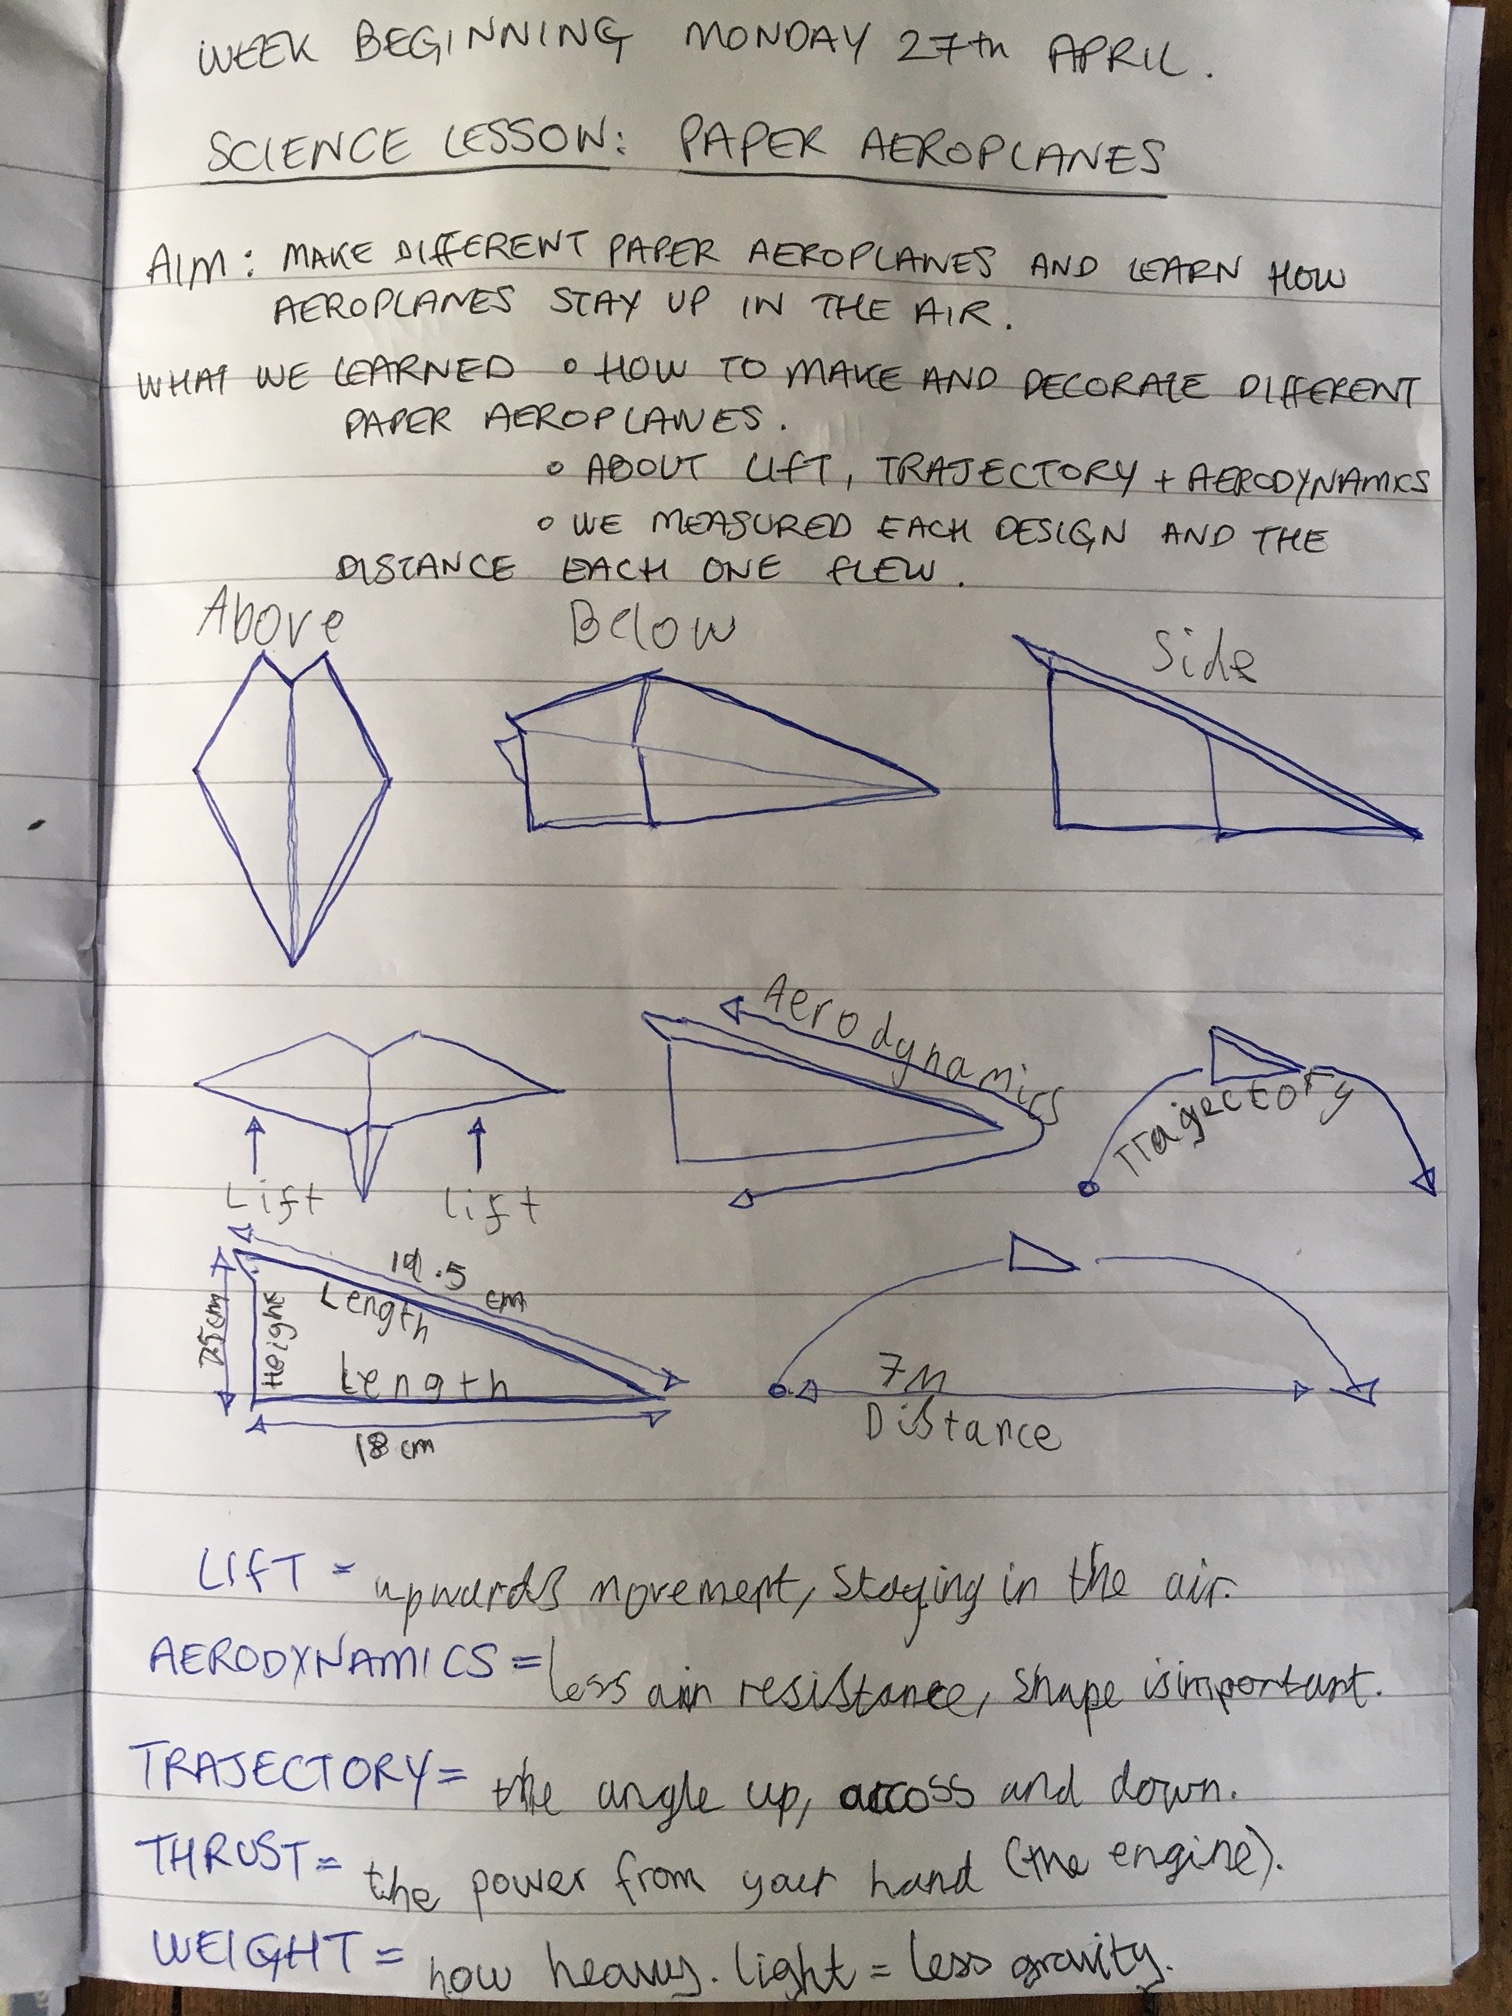 WEEK BEGINNING MONDAY 27th APRIL.
SCIENCE LESSON: PAPER AEROPLANES
AIM: MAKE DIFFERENT PAPER AEROPLANES AND LEARN HOW
AEROPLANES STAY UP IN THE AIR.
WHAT WE LEARNED o HOW TO MAKE AND DECORATE DIFFERENT
PAPER AEROPLANES.
o ABOUT LIFT, TRAJECTORY + AERODYNAMICS
o WE MEASURED EACH DESIGN AND THE
DISTANCE EACH ONE FLEW.
Above Below Side
Aerodynamics
Trajectory
Lift lift
19.5 cm
Length
Height
Length
18 cm
7M
Distance
LIFT = upwards movement, staying in the air.
AERODYNAMICS = less air resistance, shape is important.
TRAJECTORY = the angle up, accoss and down.
THRUST = the power from your hand (the engine).
WEIGHT = how heavy. light = less gravity.